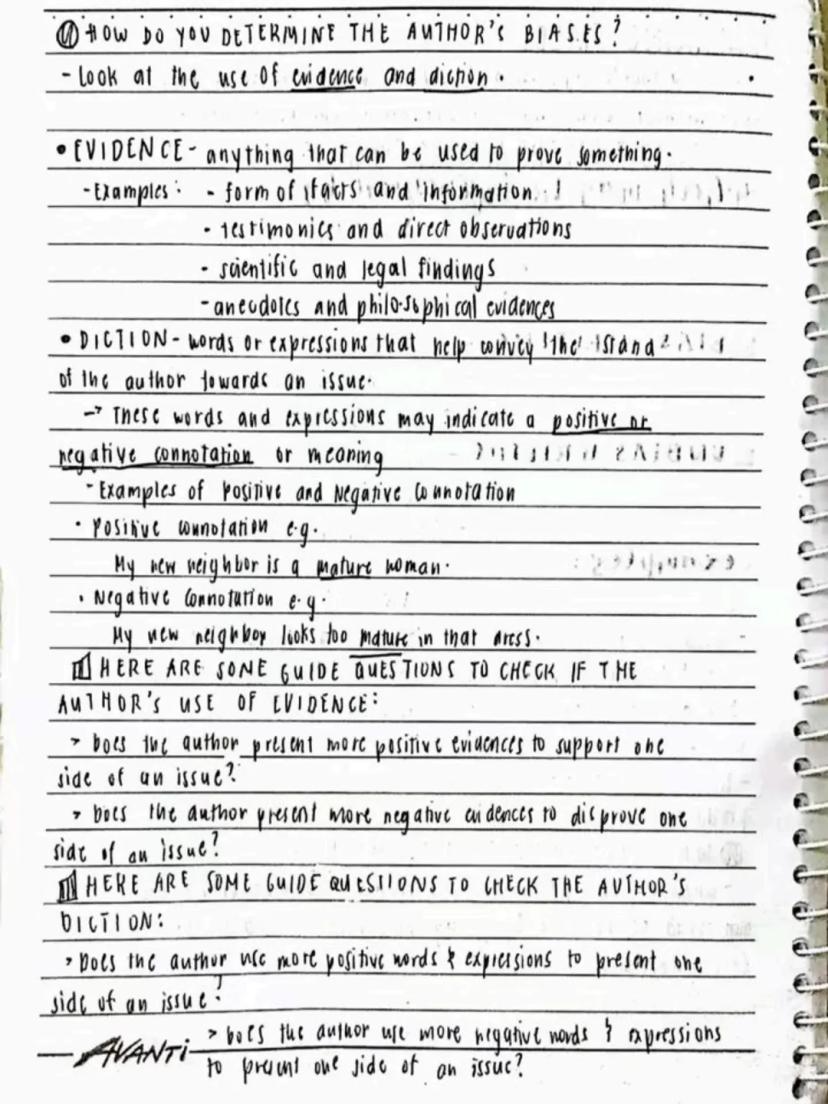 HOW DO YOU DETERMINE THE AUTHOR'S BIASES?
- Look at the use of evidence and diction.
• EVIDENCE - anything that can be used to prove something.
- Examples: - form of facts and information
- testimonies and direct observations
- scientific and legal findings
- anecdotes and philosophical evidences
• DICTION - words or expressions that help convey the stand
of the author towards an issue.
→ These words and expressions may indicate a positive or
negative connotation or meaning
- Examples of Positive and Negative Connotation
• Positive connotation e.g.
My new neighbor is a mature woman.
• Negative Connotation e.g.
My new neighbor looks too mature in that dress.
HERE ARE SOME GUIDE QUESTIONS TO CHECK IF THE
AUTHOR'S USE OF EVIDENCE:
> Does the author present more positive evidences to support one
side of an issue?
> Does the author present more negative evidences to disprove one
side of an issue?
HERE ARE SOME GUIDE QUESTIONS TO CHECK THE AUTHOR'S
DICTION:
> Does the author use more positive words & expressions to present one
side of an issue?
> Does the author use more negative words & expressions
AVANTI
to present one side of an issue?